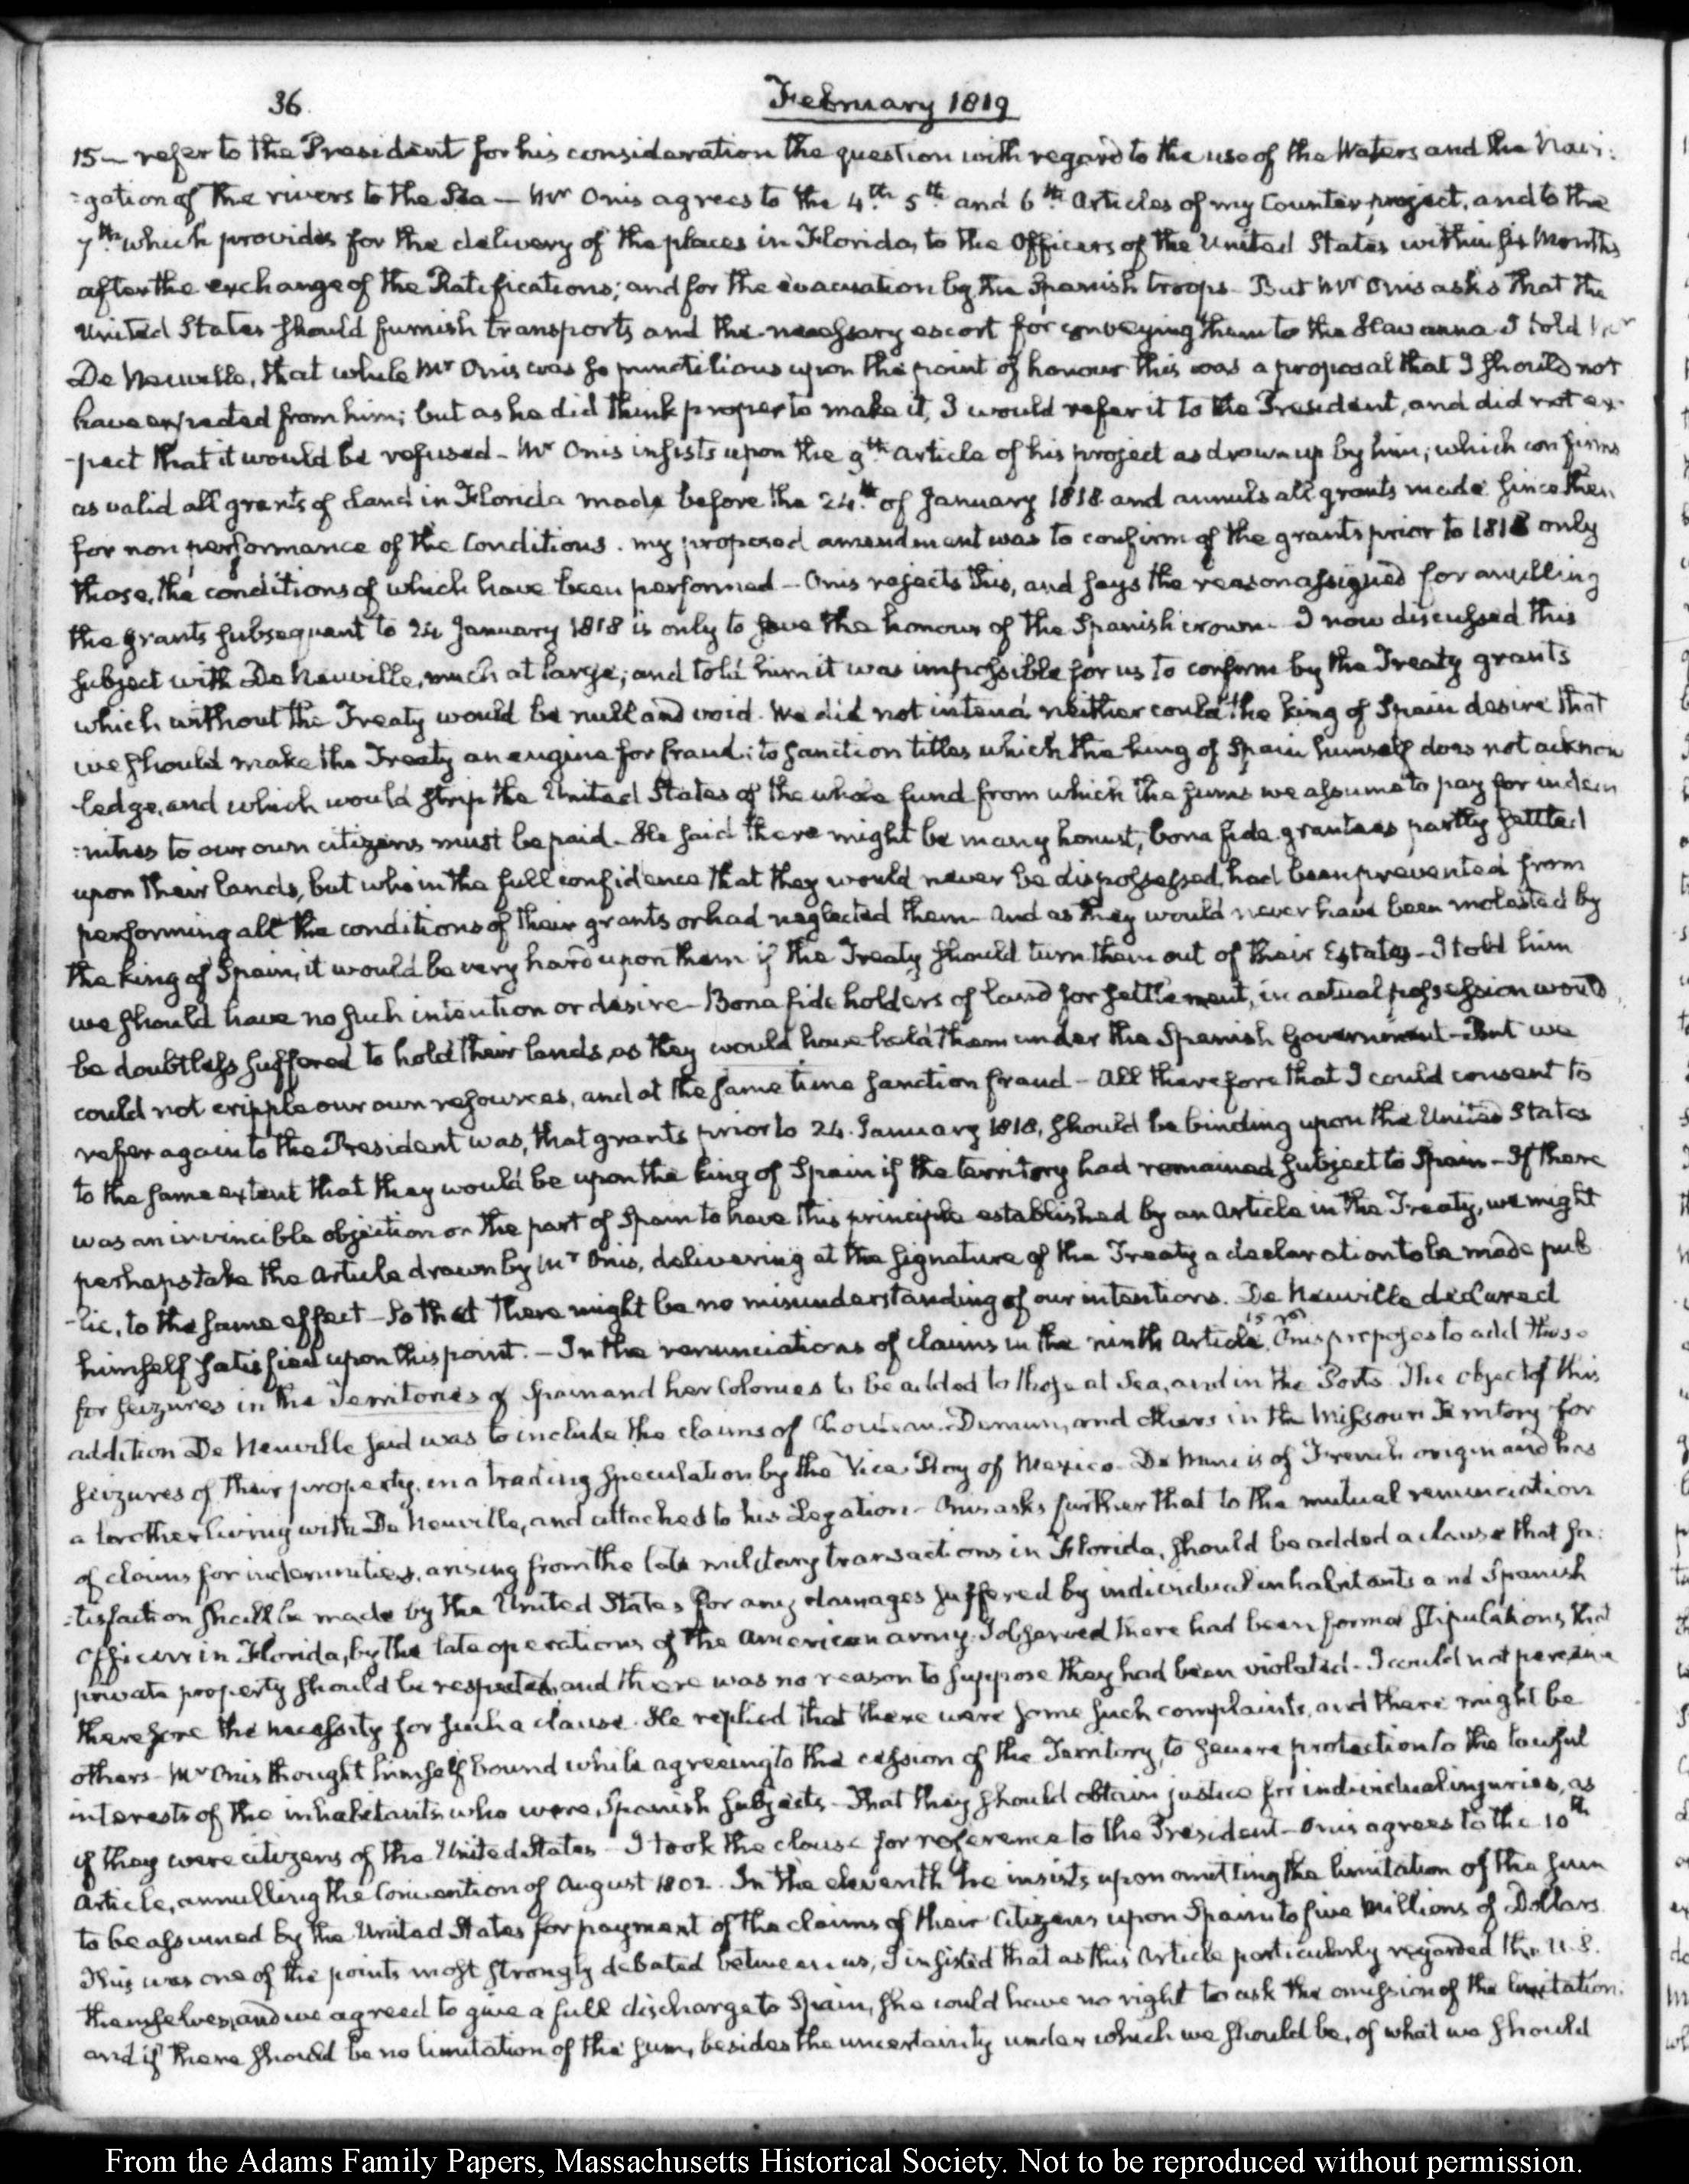 36.
February 1819
15 — refer to the President for his consideration the question with regard to the use of the Waters and the Navi:
:gation of the rivers to the Sea — Mr Onis agrees to the 4th. 5th. and 6th. Articles of my Counter project, and to the
7th. which provides for the delivery of the places in Florida, to the Officers of the United States within six Months
after the exchange of the Ratifications; and for the evacuation by the Spanish troops. But Mr Onis asks that the
United States should furnish transports and the necessary escort for conveying them to the Havanna. I told Mr
De Neuville, that while Mr Onis was so punctilious upon the point of honour this was a proposal that I should not
have expected from him; but as he did think proper to make it, I would refer it to the President, and did not ex-
-pect that it would be refused. Mr Onis insists upon the 9th. Article of his project as drawn up by him; which confirms
as valid all grants of Land in Florida made before the 24th. of January 1818 and annuls all grants made since then
for non performance of the Conditions. my proposed amendment was to confirm of the grants prior to 1818 only
those, the conditions of which have been performed — Onis rejects this, and says the reason assigned for anulling
the grants subsequent to 24 January 1818 is only to save the honour of the Spanish crown. I now discussed this
subject with De Neuville, much at large; and told him it was impossible for us to confirm by the Treaty grants
which without the Treaty would be null and void. We did not intend, neither could the king of Spain desire that
we should make the Treaty an engine for fraud; to sanction titles which the king of Spain himself does not acknow
-ledge, and which would strip the United States of the whole fund from which the sums we assume to pay for indem
:nities to our own citizens must be paid. He said there might be many honest, bona fide grantees partly settled
upon their lands, but who in the full confidence that they would never be dispossessed, had been prevented from
performing all the conditions of their grants or had neglected them. And as they would never have been molested by
the king of Spain, it would be very hard upon them if the Treaty should turn them out of their Estates — I told him
we should have no such intention or desire — Bona fide holders of land for settlement, in actual possession would
be doubtless suffered to hold their lands, as they would have held them under the Spanish Government — But we
could not cripple our own resources, and at the same time sanction fraud — All therefore that I could consent to
refer again to the President was, that grants prior to 24. January 1818, should be binding upon the United States
to the same extent that they would be upon the king of Spain if the territory had remained subject to Spain — If there
was an invincible objection on the part of Spain to have this principle established by an Article in the Treaty, we might
perhaps take the Article drawn by Mr Onis, delivering at the signature of the Treaty a declaration to be made pub
-lic, to the same effect — So that there might be no misunderstanding of our intentions. De Neuville declared
himself satisfied upon this point. — In the renunciations of claims in the ninth Article, Onis proposes to add those
for seizures in the Territories of Spain and her Colonies to be added to those at Sea, and in the Ports. The object of this
addition De Neuville said was to include the claims of Chouteau, Demun, and others in the Missouri Territory for
seizures of their property, in a trading speculation by the Vice-Roy of Mexico. De Mun is of French origin and has
a brother living with De Neuville, and attached to his Legation — Onis asks further that to the mutual renunciation
of claims for indemnities, arising from the late military transactions in Florida, should be added a clause that sa:
:tisfaction shall be made by the United States for any damages suffered by individual inhabitants and Spanish
Officers in Florida, by the late operations of the American army. I observed there had been formal stipulations that
private property should be respected, and there was no reason to suppose they had been violated — I could not perceive
therefore the necessity for such a clause. He replied that there were some such complaints, and there might be
others — Mr Onis thought himself bound while agreeing to the cession of the Territory, to secure protection to the lawful
interests of the inhabitants who were Spanish subjects — That they should obtain justice for individual injuries, as
if they were citizens of the United States — I took the clause for reference to the President — Onis agrees to the 10th
Article, annulling the Convention of August 1802. In the eleventh he insists upon omitting the limitation of the sum
to be assumed by the United States for payment of the claims of their Citizens upon Spain to five Millions of Dollars.
This was one of the points most strongly debated between us; I insisted that as this Article particularly regarded the U.S.
themselves, and we agreed to give a full discharge to Spain, she could have no right to ask the omission of the limitation;
and if there should be no limitation of the sum, besides the uncertainty under which we should be, of what we should
From the Adams Family Papers, Massachusetts Historical Society. Not to be reproduced without permission.